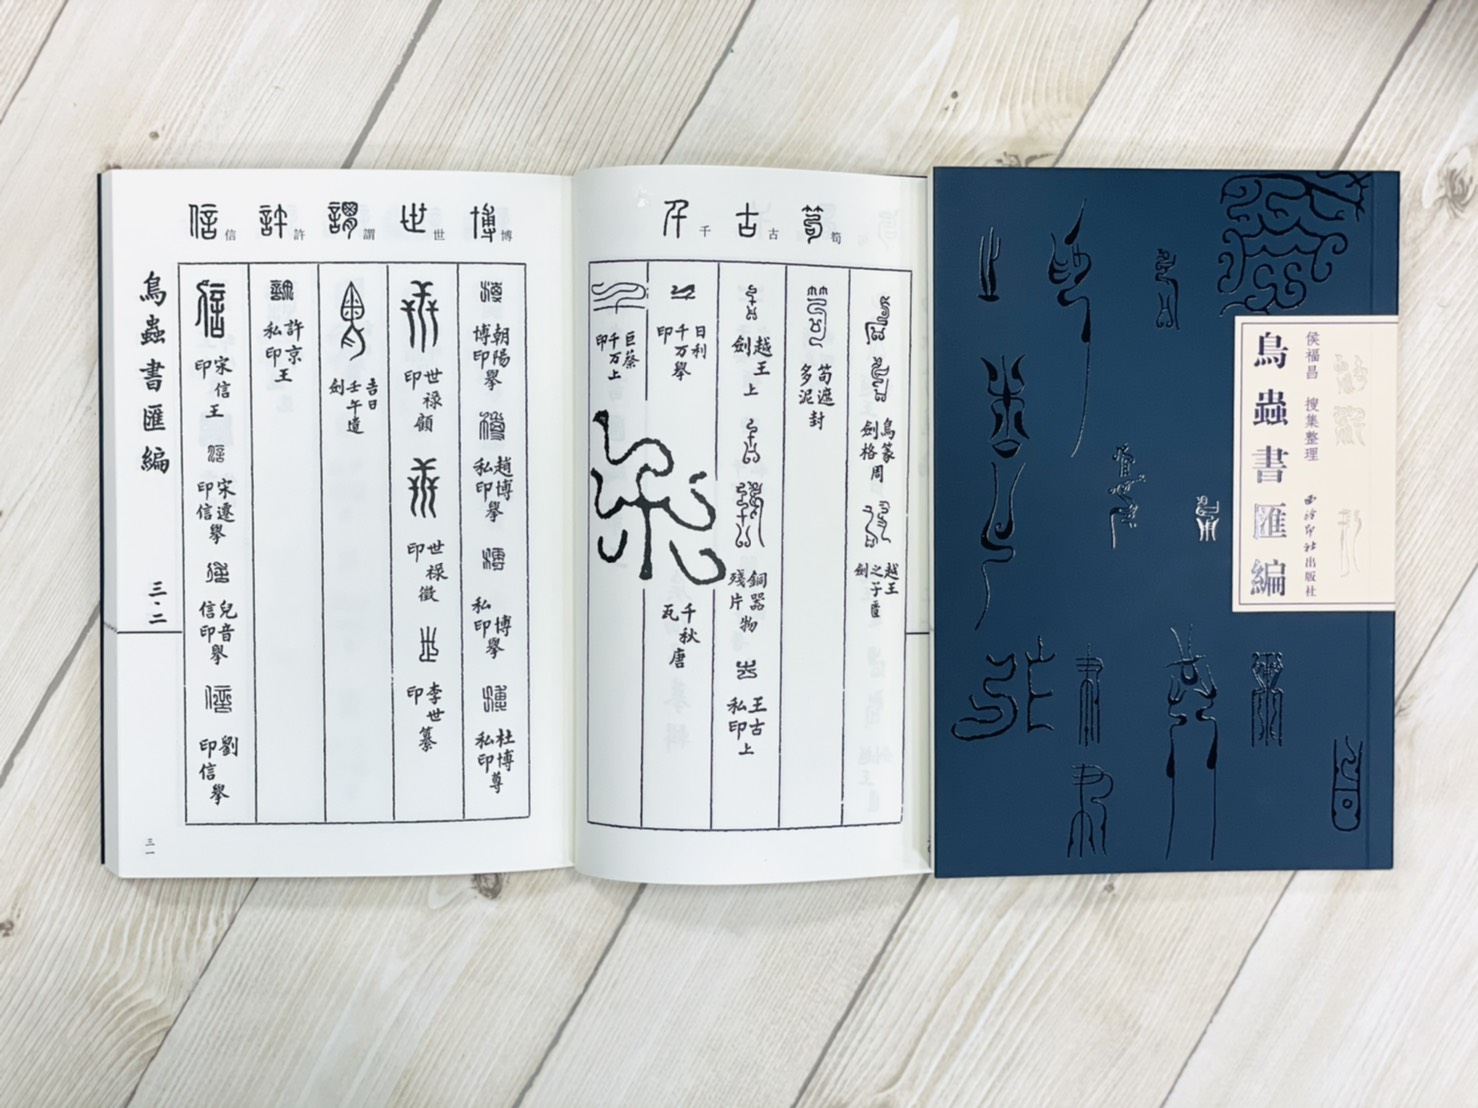 侯福昌 搜集整理
鳥蟲書匯編
西泠印社出版社
筍
古
千
鳥篆劍格周
越王之子劍
筍遮多泥封
越王劍上
銅器物殘片
王古私印上
日利千万舉印
千秋唐瓦
巨蔡千万上印
博
世
謂
許
信
朝陽博印舉
趙博私印舉
博私印舉
杜博私印尊
世祿顧印
世祿徵印
李世纂印
吉日壬午劍遺
許京私印王
宋信印王
宋遼印信舉
兒音信印舉
劉印信舉
鳥蟲書匯編
三·二
三一